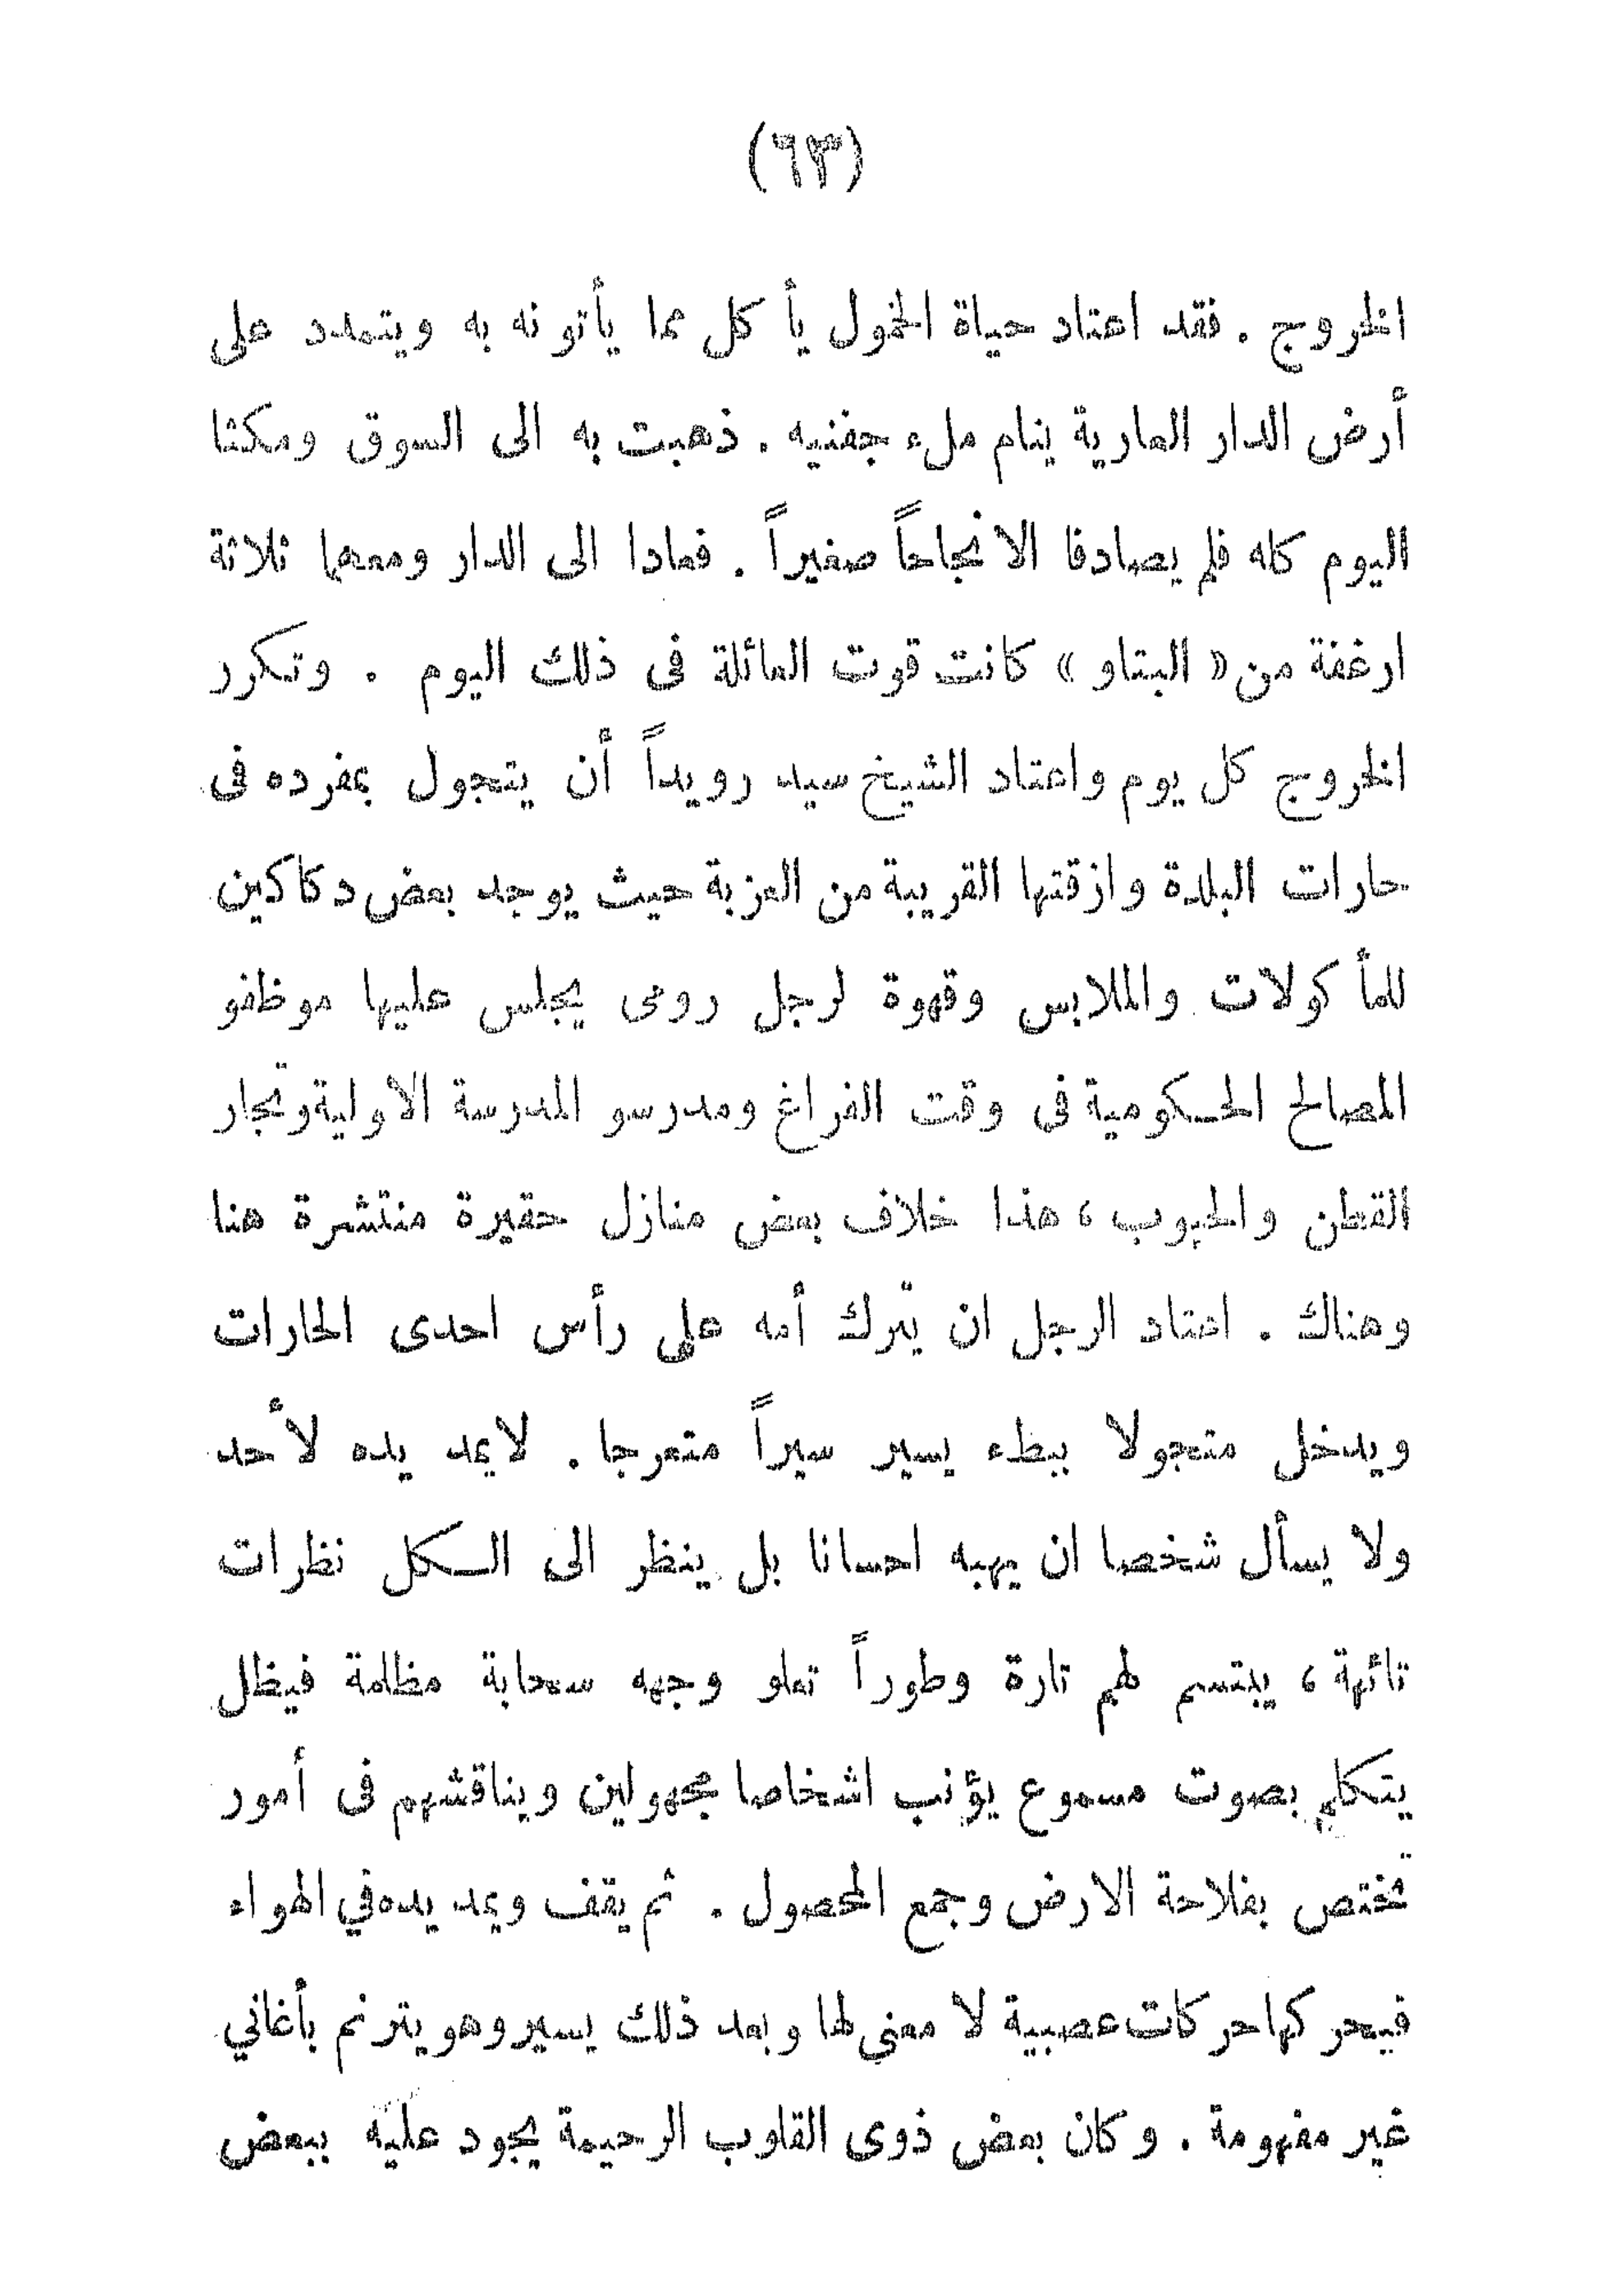 (٦٣)
الخروج . فقد اعتاد حياة الخمول يأ كل مما يأتونه به ويتمدد على
أرض الدار العارية ينام ملء جفنيه . ذهبت به الى السوق ومكثا
اليوم كله فلم يصادفا الا نجاحاً صغيراً . فعادا الى الدار ومعهما ثلاثة
ارغفة من « البتاو » كانت قوت العائلة فى ذلك اليوم . وتكرر
الخروج كل يوم واعتاد الشيخ سيد رويداً أن يتجول بمفرده فى
حارات البلدة وازقتها القريبة من العزبة حيث يوجد بعض دكاكين
للمأ كولات والملابس وقهوة لرجل رومى يجلس عليها موظفو
المصالح الحكومية فى وقت الفراغ ومدرسو المدرسة الاولية وتجار
القطن والحبوب ، هذا خلاف بعض منازل حقيرة منتشرة هنا
وهناك . اعتاد الرجل ان يترك أمه على رأس احدى الحارات
ويدخل متجولا ببطء يسير سيراً متعرجا . لا يمد يده لأحد
ولا يسأل شخصا ان يهبه احسانا بل ينظر الى الكل نظرات
تائهة ، يبتسم لهم تارة وطوراً تعلو وجهه سحابة مظلمة فيظل
يتكلم بصوت مسموع يؤنب اشخاصا مجهولين ويناقشهم فى أمور
تختص بفلاحة الارض وجمع المحصول . ثم يقف ويمد يده في الهواء
فيحر كها حركات عصبية لا معنى لها وبعد ذلك يسير وهو يترنم بأغاني
غير مفهومة . وكان بعض ذوى القلوب الرحيمة يجود عليه ببعض